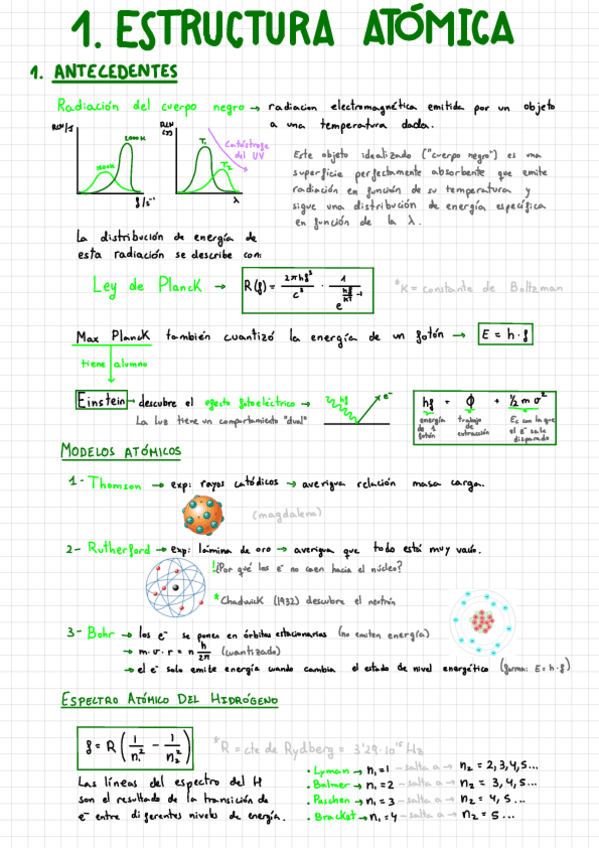 1. ESTRUCTURA ATÓMICA
1. ANTECEDENTES
Radiación del cuerpo negro → radiacion electromagnética emitida por un objeto
a una temperatura dada.
2000K
f/s⁻¹
T₁
T₂
λ
Catástrofe
del UV
Este objeto idealizado ("cuerpo negro") es una
superficie perfectamente absorbente que emite
radiación en función de su temperatura y
sigue una distribución de energía específica
en función de la λ.
La distribución de energía de
esta radiación se describe con:
Ley de Planck → R(f) = 2πhf³/c³ · 1/e^(hf/KT)-1
*K = constante de Boltzman
Max Planck también cuantizó la energía de un fotón → E = h·f
tiene alumno
Einstein → descubre el efecto fotoeléctrico →
hf
e⁻
La luz tiene un comportamiento "dual"
hf = ϕ + ½ m v²
energía
de 1
fotón
trabajo
de
extracción
Ec con la que
el e⁻ sale
disparado
MODELOS ATÓMICOS
1- Thomson → exp: rayos catódicos → averigua relación masa carga.
(magdalena)
2- Rutherford → exp: lámina de oro → averigua que todo está muy vacío.
¿Por qué los e⁻ no caen hacia el núcleo?
*Chadwick (1932) descubre el neutrón
3- Bohr → los e⁻ se ponen en órbitas estacionarias (no emiten energía)
→ m·v·r = n h/2π (cuantizado)
→ el e⁻ solo emite energía cuando cambia el estado de nivel energético (forma: E=h·f)
ESPECTRO ATÓMICO DEL HIDRÓGENO
f = R (1/n₁² - 1/n₂²)
*R = cte de Rydberg = 3'29·10¹⁵ Hz
Las líneas del espectro del H
son el resultado de la transición de
e⁻ entre diferentes niveles de energía.
· Lyman → n₁=1 – salta a → n₂ = 2,3,4,5...
· Balmer → n₁=2 – salta a → n₂ = 3,4,5...
· Paschen → n₁=3 – salta a → n₂ = 4,5...
· Bracket → n₁=4 – salta a → n₂ = 5...